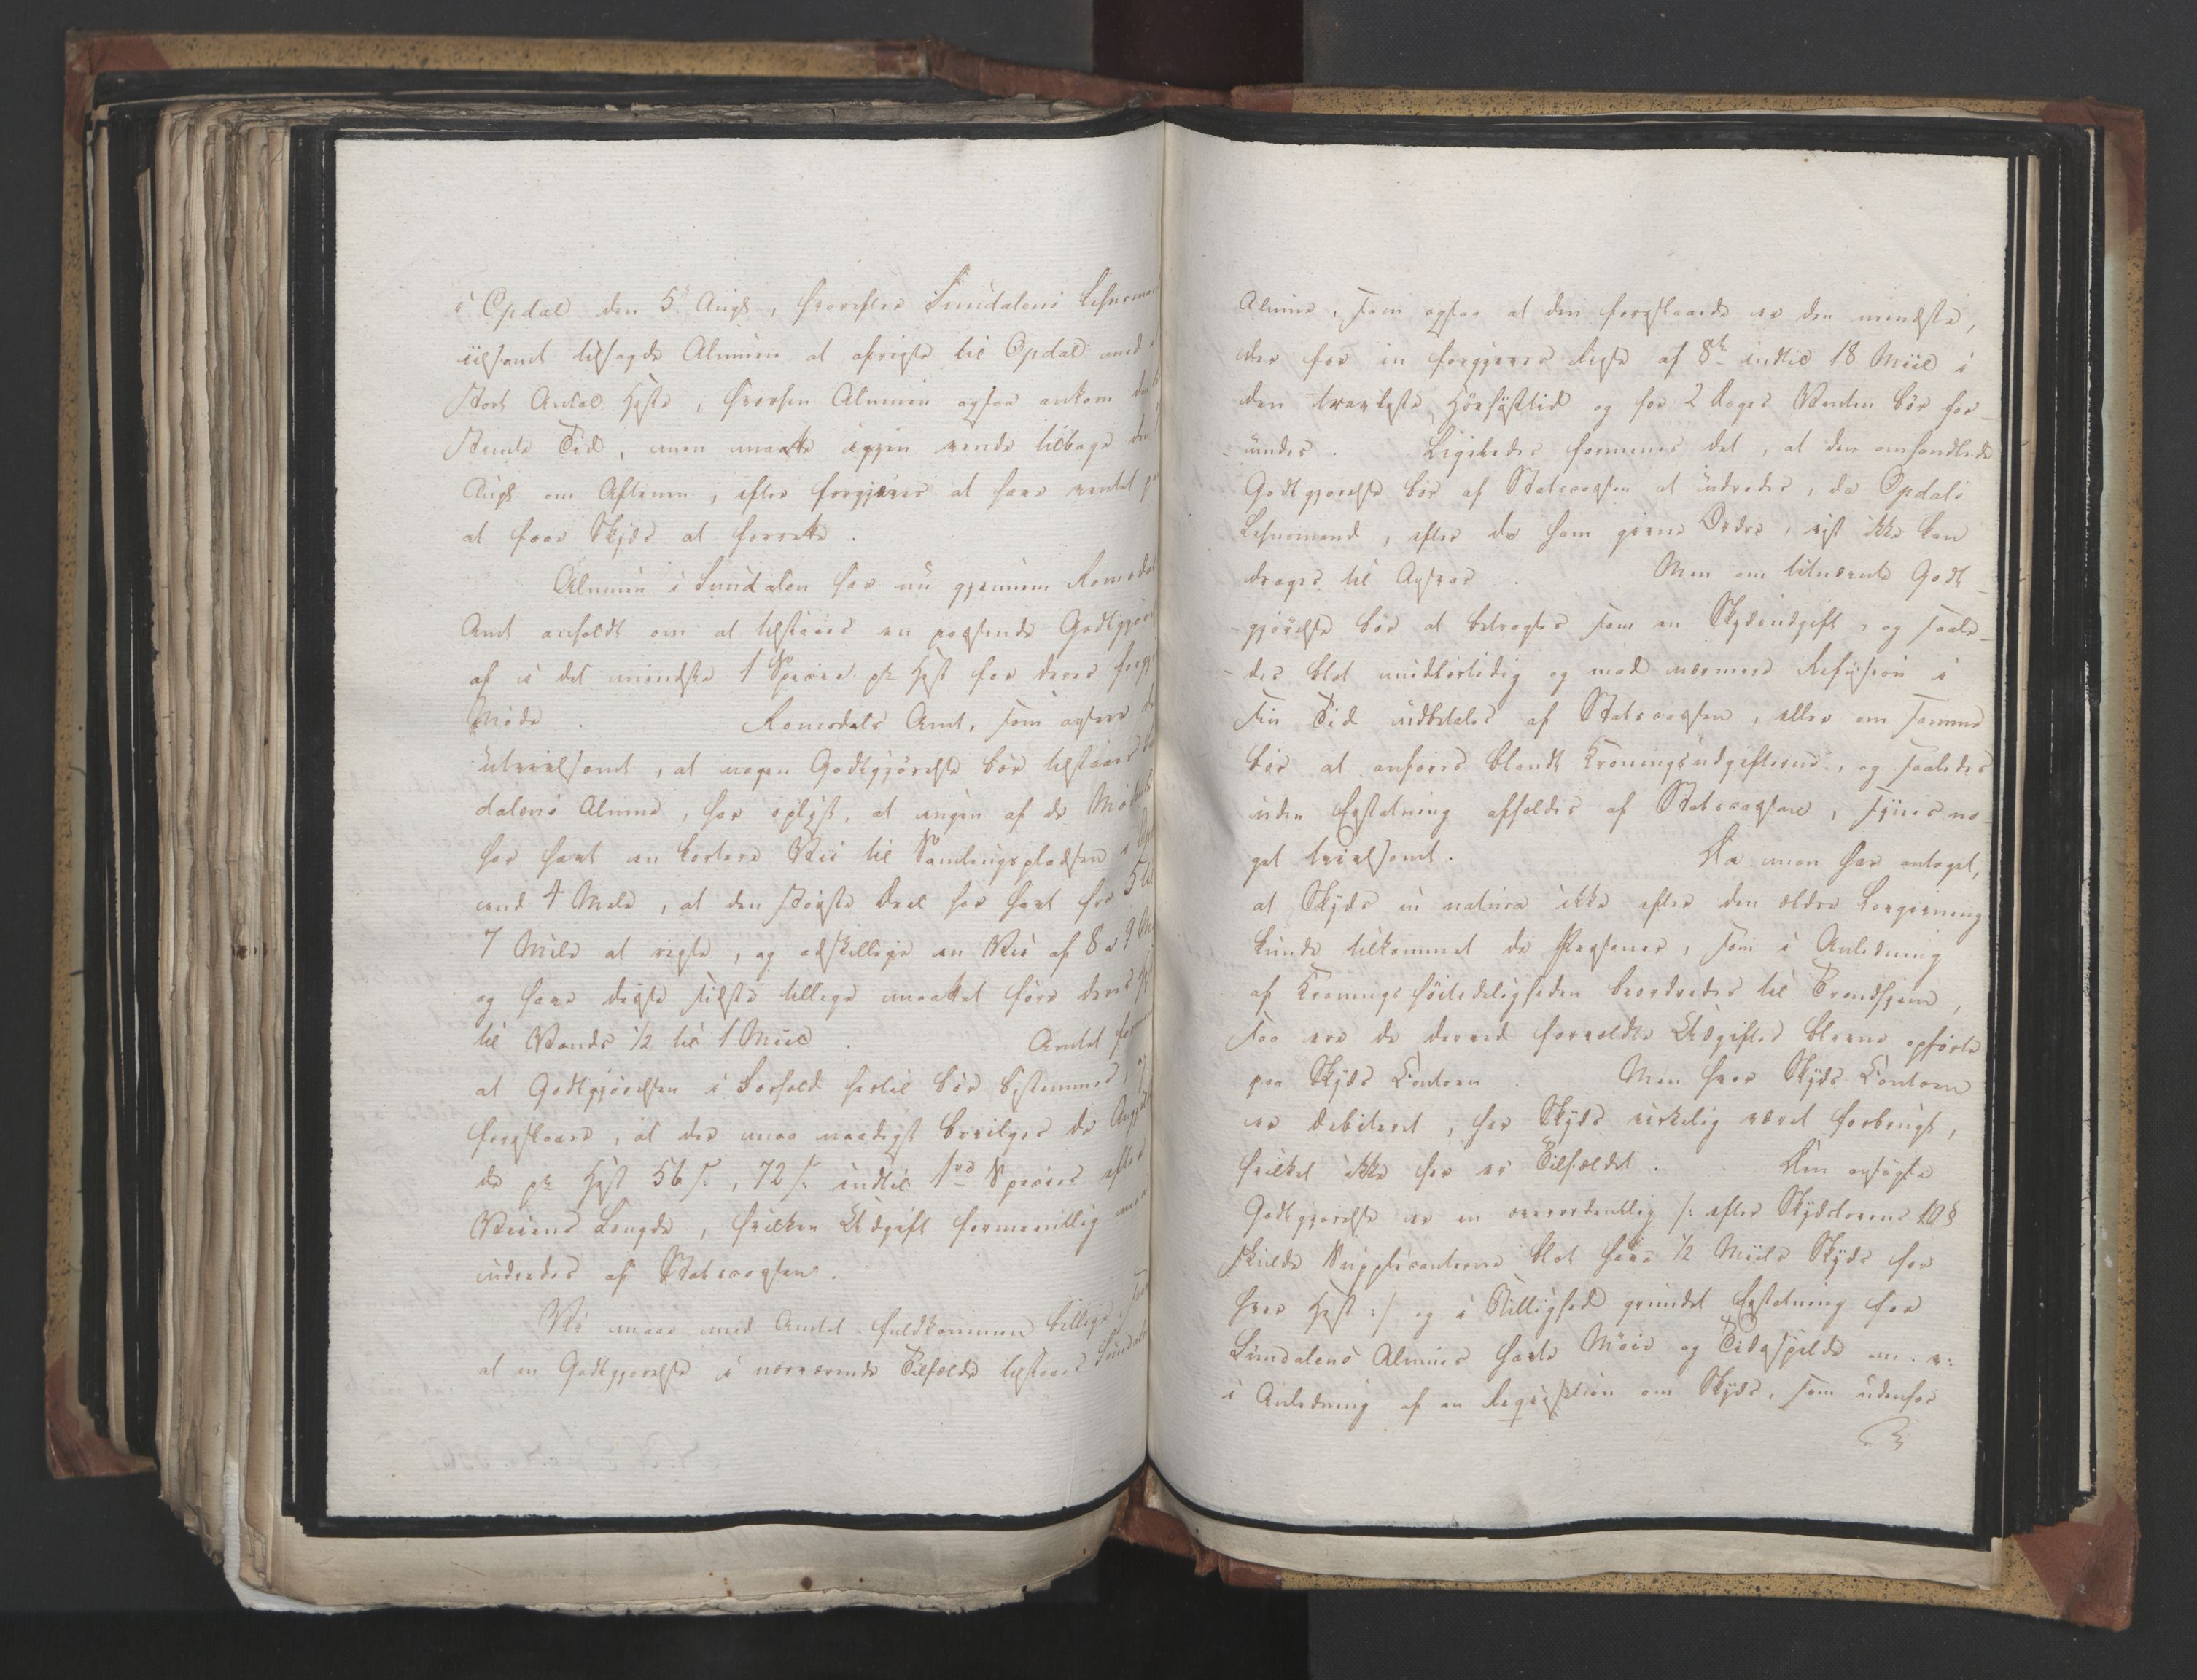 i Opdal den 5te Augt, hvorefter Sundalens Lehnsmand
iilsomt tilsagde Almuen at afreise til Opdal med
stort Antal Heste, hvorhen Almuen ogsaa ankom
stemte Tid, men maatte igjen vende tilbage den
Augt om Aftenen, efter forgjæves at have ventet
at faae Skyds at forrette.
Almuen i Sundalen har nu gjennem Romsdals
Amt anholdt om at tilstaaes en passende Godtgjørelse
af i det mindste 1 Specie pr Hest for deres
Møde. Romsdals Amt, som anseer
utvivlsomt, at nogen Godtgjørelse bør tilstaaes
dalens Almue, har oplyst, at ingen af de
har havt en kortere Vei til Samlingspladsen i
end 4 Mile, at den største Deel har havt fra 5 til
7 Mile at reise, og adskillige en Vei af 8 a 9
og have disse sidste tillige maattet føre deres
til Vands 1/2 til 1 Miil. Amtet
at Godtgjørelsen i Forhold hertil bør bestemmes,
foreslaaer, at der maa naadigst bevilges de
de pr Hest 56 s., 72 s. indtil 1 Species efter
Veiens Længde, hvilken Udgivt formeentlig maa
udredes af Statscassen.
Vi maae med Amtet fuldkommen billige,
at en Godtgjørelse i nærværende Tilfælde tilstaaes
Almue, som ogsaa at den foreslaaede er den mindste,
der for en forgjæves Reise af 8te indtil 18 Miil i
den travleste Høehøsttid og for 2 Dages Venten bør for-
undes. Ligeledes formenes det, at den omhandlede
Godtgjørelse bør af Statscassen at udredes, da Opdals
Lehnsmand, efter de ham givne Ordre, vist ikke kan
drages til Ansvar. Men om tilnævnte Godt-
gjørelse bør at betragtes som en Skydsudgift, og saale-
des blot midlertidig og mod nærmere Refusion i
sin Tid udbetales af Statscassen, eller om samme
bør at anføres blandt Kroningsudgifterne, og saaledes
uden Erstatning afholdes af Statscassen, synes no-
get tvivlsomt. Da man har antaget,
at Skyds in natura ikke efter den ældre Lovgivning
kunde tilkommet de Personer, som i Anledning
af Kroningshøitideligheden beordredes til Trondhjem,
saa ere de derved forvoldte Udgifter blevne opførte
paa Skyds Contoen. Men hvor Skyds Contoen
er debiteret, har Skyds virkelig været forbrugt,
hvilket ikke her er Tilfældet. Den ansøgte
Godtgjørelse er en overordentlig /: efter Skydslovens 10§
skulde Supplicanterne blot have 1/2 Miils Skyds for
hver Hest :/ og i Billighed grundet Erstatning for
Sundalens Almues havte Møie og Tidsspilde m. v.
i Anledning af en Reqvisition om Skyds, som udenfor